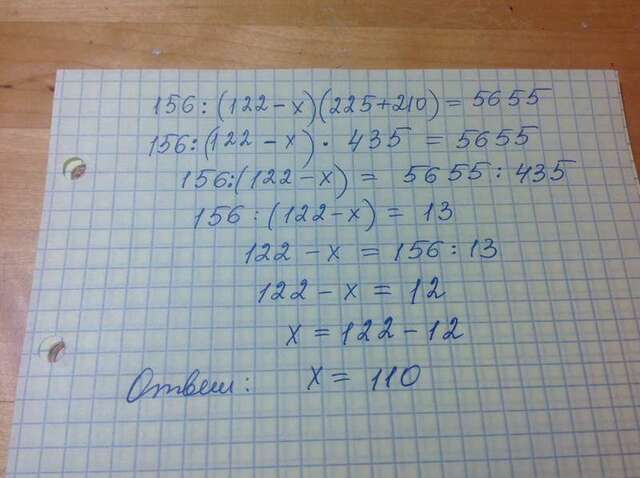 156:(122-x)(225+210)=5655
156:(122-x)·435=5655
156:(122-x)=5655:435
156:(122-x)=13
122-x=156:13
122-x=12
x=122-12
Ответ: x=110